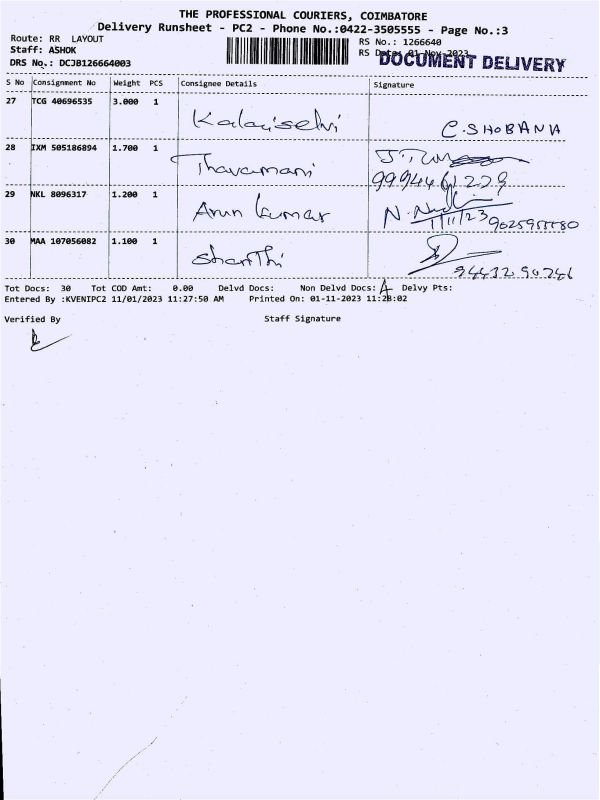 THE PROFESSIONAL COURIERS, COIMBATORE
Delivery Runsheet - PC2 - Phone No.:0422-3505555 - Page No.:3
Route: RR LAYOUT
RS No.: 1266640
Staff: ASHOK
RS Date: 01-Nov-2023
DOCUMENT DELIVERY
DRS No.: DCJB126664003
S No Consignment No Weight PCS Consignee Details Signature
27 TCG 40696535 3.000 1
Kalaiselvi C.SHOBANA
28 IXM 505186894 1.700 1
Thavamani
9994461229
29 NKL 8096317 1.200 1
Arun kumar
1/11/23
30 MAA 107056082 1.100 1
Shanthi
Tot Docs: 30 Tot COD Amt: 0.00 Delvd Docs: Non Delvd Docs: Delvy Pts:
Entered By :KVENIPC2 11/01/2023 11:27:50 AM Printed On: 01-11-2023 11:28:02
Verified By Staff Signature